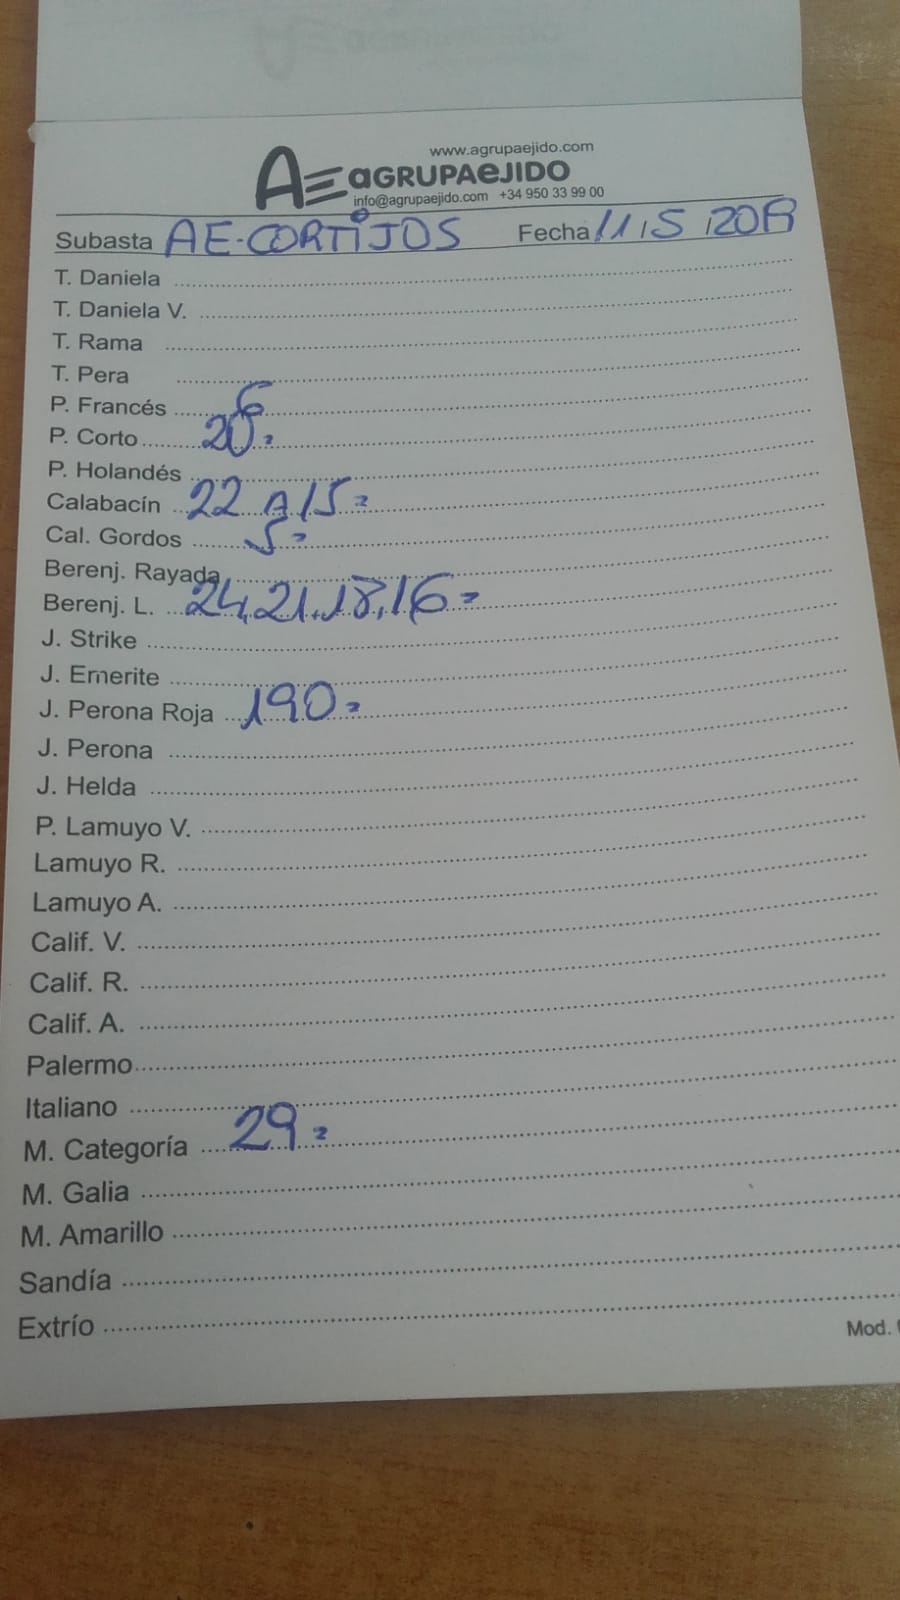 www.agrupaejido.com
AE aGRUPAeJIDO
info@agrupaejido.com +34 950 33 99 00
Subasta AE-CORTIJOS Fecha 11/5/20
T. Daniela
T. Daniela V.
T. Rama
T. Pera
P. Francés 6
P. Corto 20
P. Holandés
Calabacín 22 A 15
Cal. Gordos 5
Berenj. Rayada
Berenj. L. 24,21,18,16
J. Strike
J. Emerite
J. Perona Roja 190
J. Perona
J. Helda
P. Lamuyo V.
Lamuyo R.
Lamuyo A.
Calif. V.
Calif. R.
Calif. A.
Palermo
Italiano
M. Categoría 29
M. Galia
M. Amarillo
Sandía
Extrío
Mod.